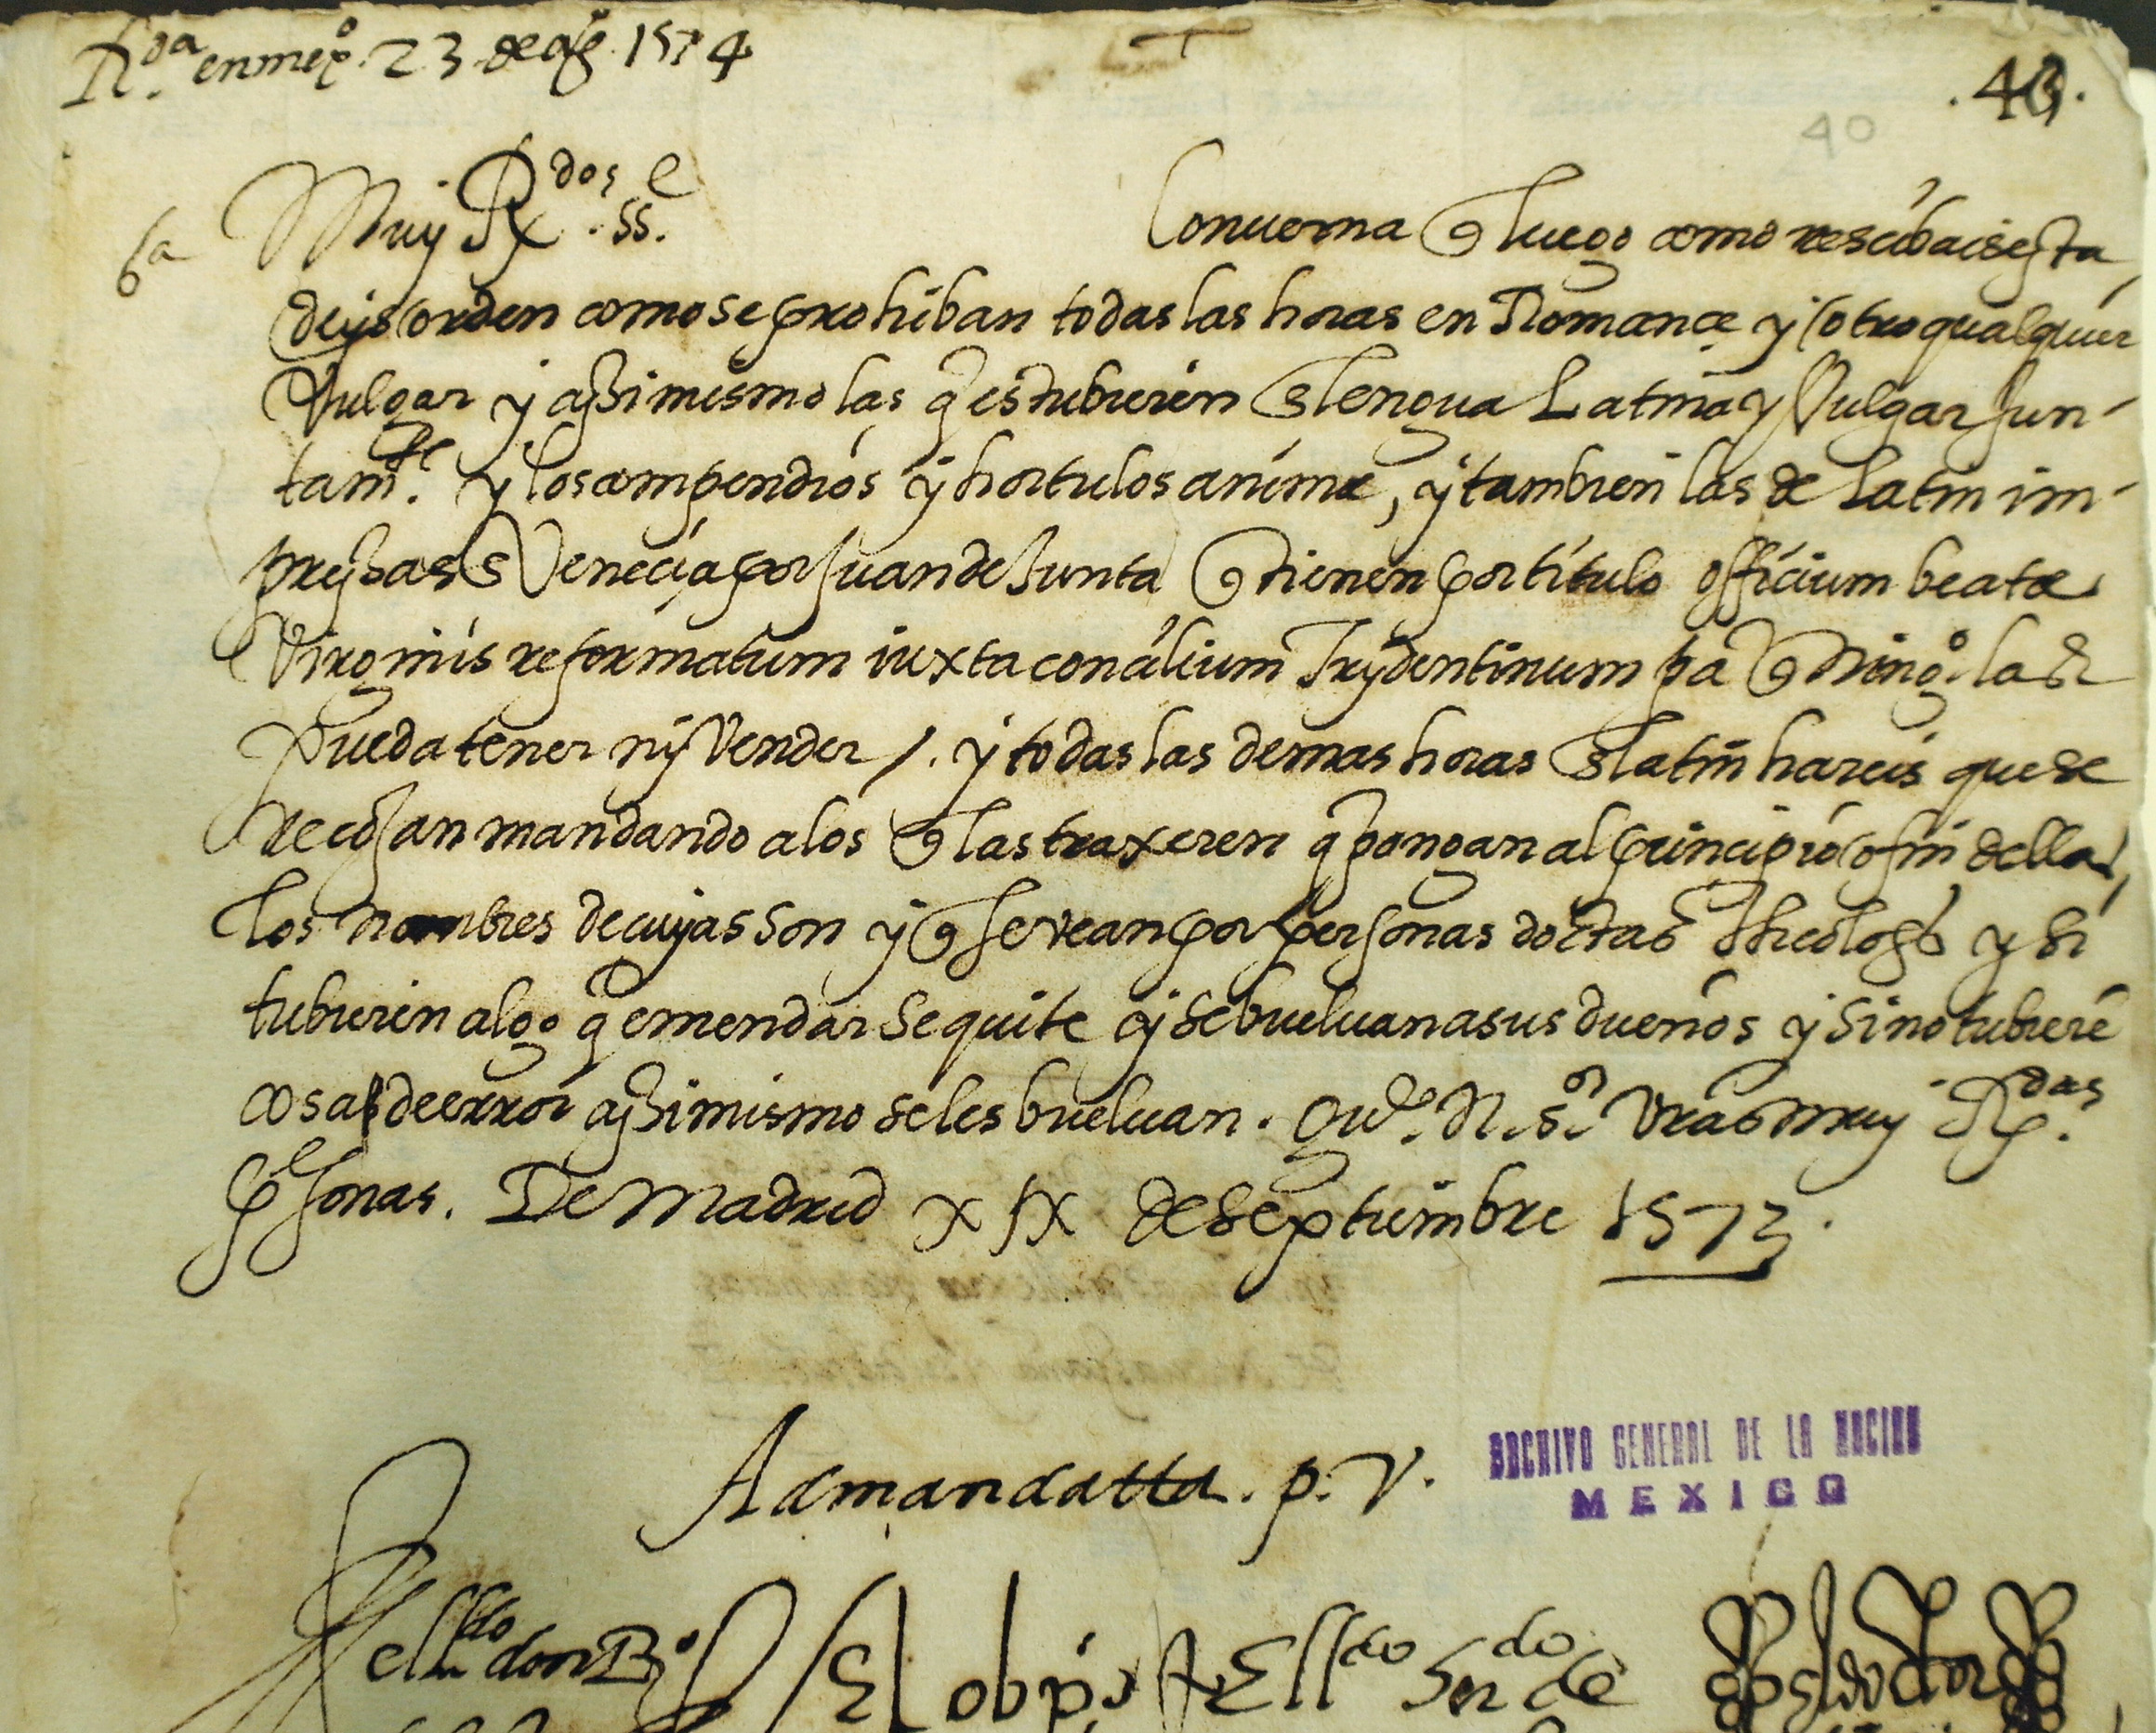 R.da en mex.o 23 de ag.o 1574
.43.
40
6a
Muy R.dos ss.es
Conuerna q luego como rescibaisesta
deys orden como se prohiban todas las horas en Romance y otro qualquier
Vulgar y assimismo las q̃ estubieren en lengua Latina y Vulgar Jun-
tam.te y los compendios y hortulos anime, y tambien las de latin im-
pressas en Venecia por Juan de Junta q tienen por titulo officium beate
Virginis reformatum iuxta concilium Trydentinum pa q ning.o las
pueda tener ny Vender /. y todas las demas horas en latin hareis que se
recojan mandando a los q las traxeren q̃ pongan al principio o fin dellas
los nombres de cuyas son y q se vean por personas doctas theologos y si
tubieren algo q̃ emendar se quite y se bueluan a sus dueños y si no tubierẽ
cosas de error assimismo se les bueluan. Gu.e N. S.or Vras muy R.das
personas. De Madrid XIX de Septiembre 1573.
Ad mandatta. p. V.
ARCHIVO GENERAL DE LA NACION
MEXICO
el l.do don
El obpo
El l.do
de
el doctor